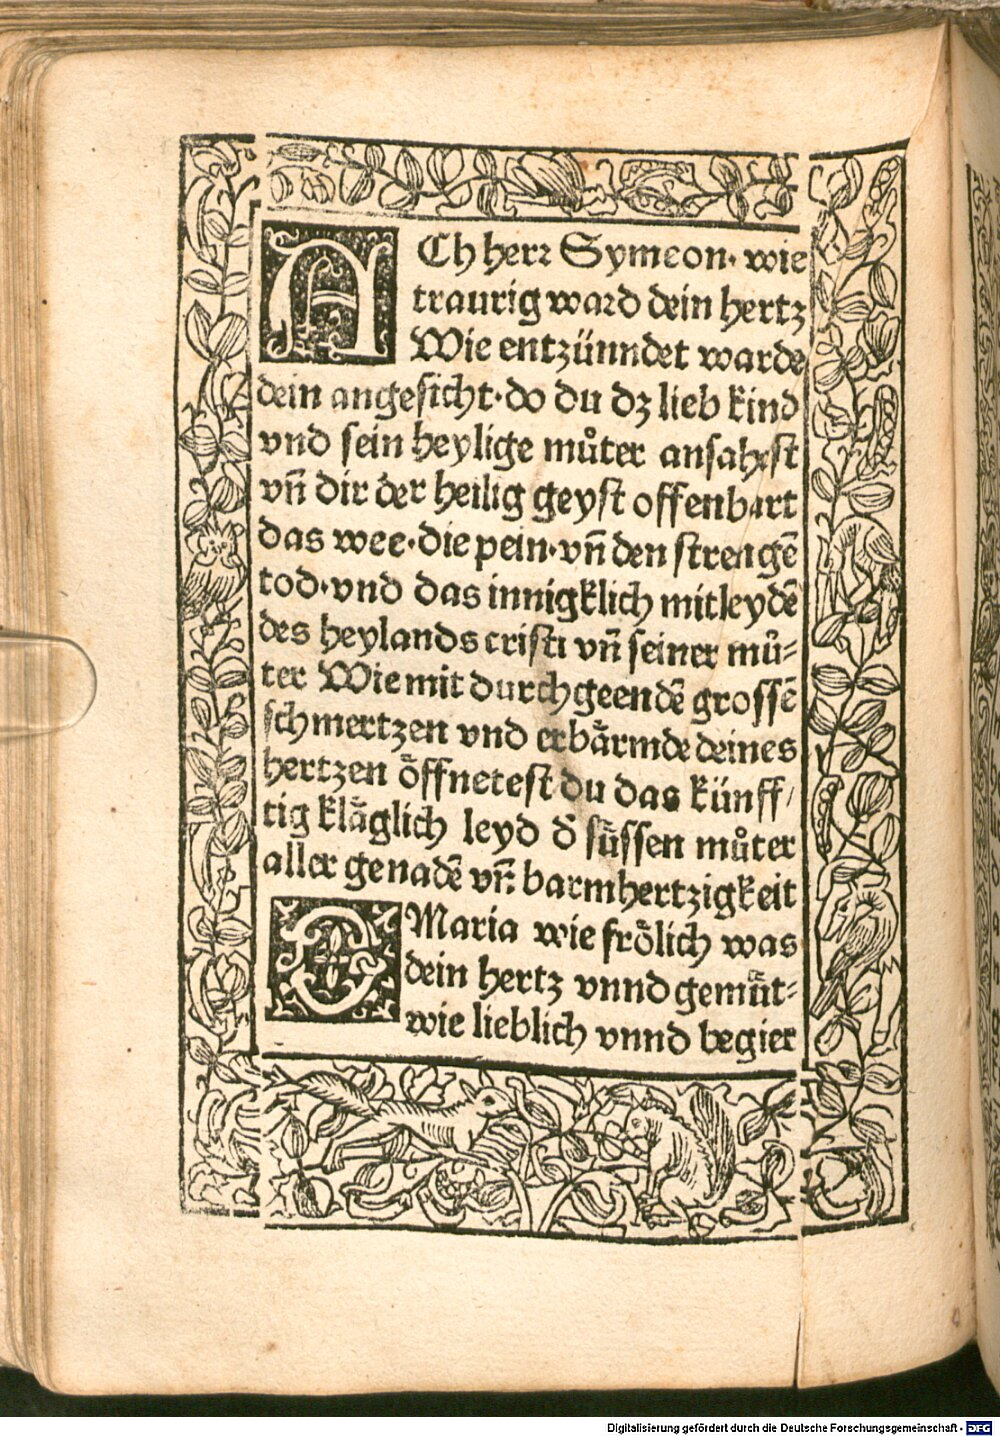 ACh herr Symeon· wie
traurig ward dein hertz
Wie entzünndet warde
dein angesicht· do du dz lieb kind
vnd sein heylige můter ansahest
vn̄ dir der heilig geyst offenbart
das wee· die pein· vn̄ den strengē
tod· vnd das innigklich mitleydē
des heylands cristi vn̄ seiner mů-
ter Wie mit durchgeendē grossē
schmertzen vnd erbaͤrmde deines
hertzen oͤffnetest du das künff/
tig klaͤglich leyd d̄ suͤssen můter
aller genadē vn̄ barmhertzigkeit
O Maria wie froͤlich was
dein hertz vnnd gemuͤt-
wie lieblich vnnd begier
Digitalisierung gefördert durch die Deutsche Forschungsgemeinschaft - DFG